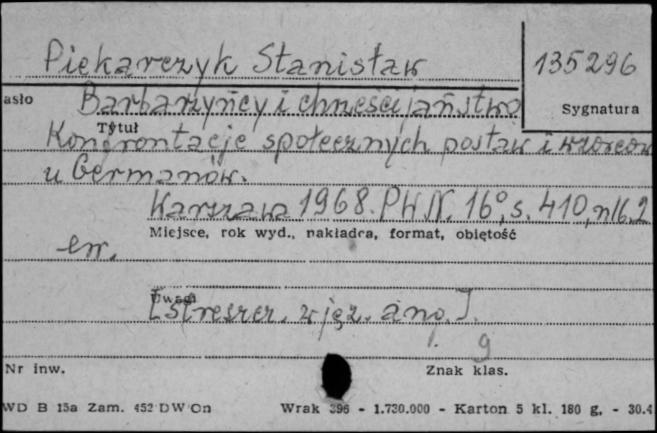 Piekarczyk Stanisław
135296
asło
Barbarzyńcy i chrześcijaństwo
Sygnatura
Tytuł
Konfrontacje społecznych postaw i wzorców
u Germanów.
Warszawa 1968. PWN. 16°, s. 410, nlb. 2
Miejsce, rok wyd., nakładca, format, objętość
err.
Uwagi
[streszcz. w jęz. ang.].
9
Nr inw.
Znak klas.
WD B 15a Zam. 452 DW On Wrak 396 - 1.730.000 - Karton 5 kl. 180 g. - 30.4